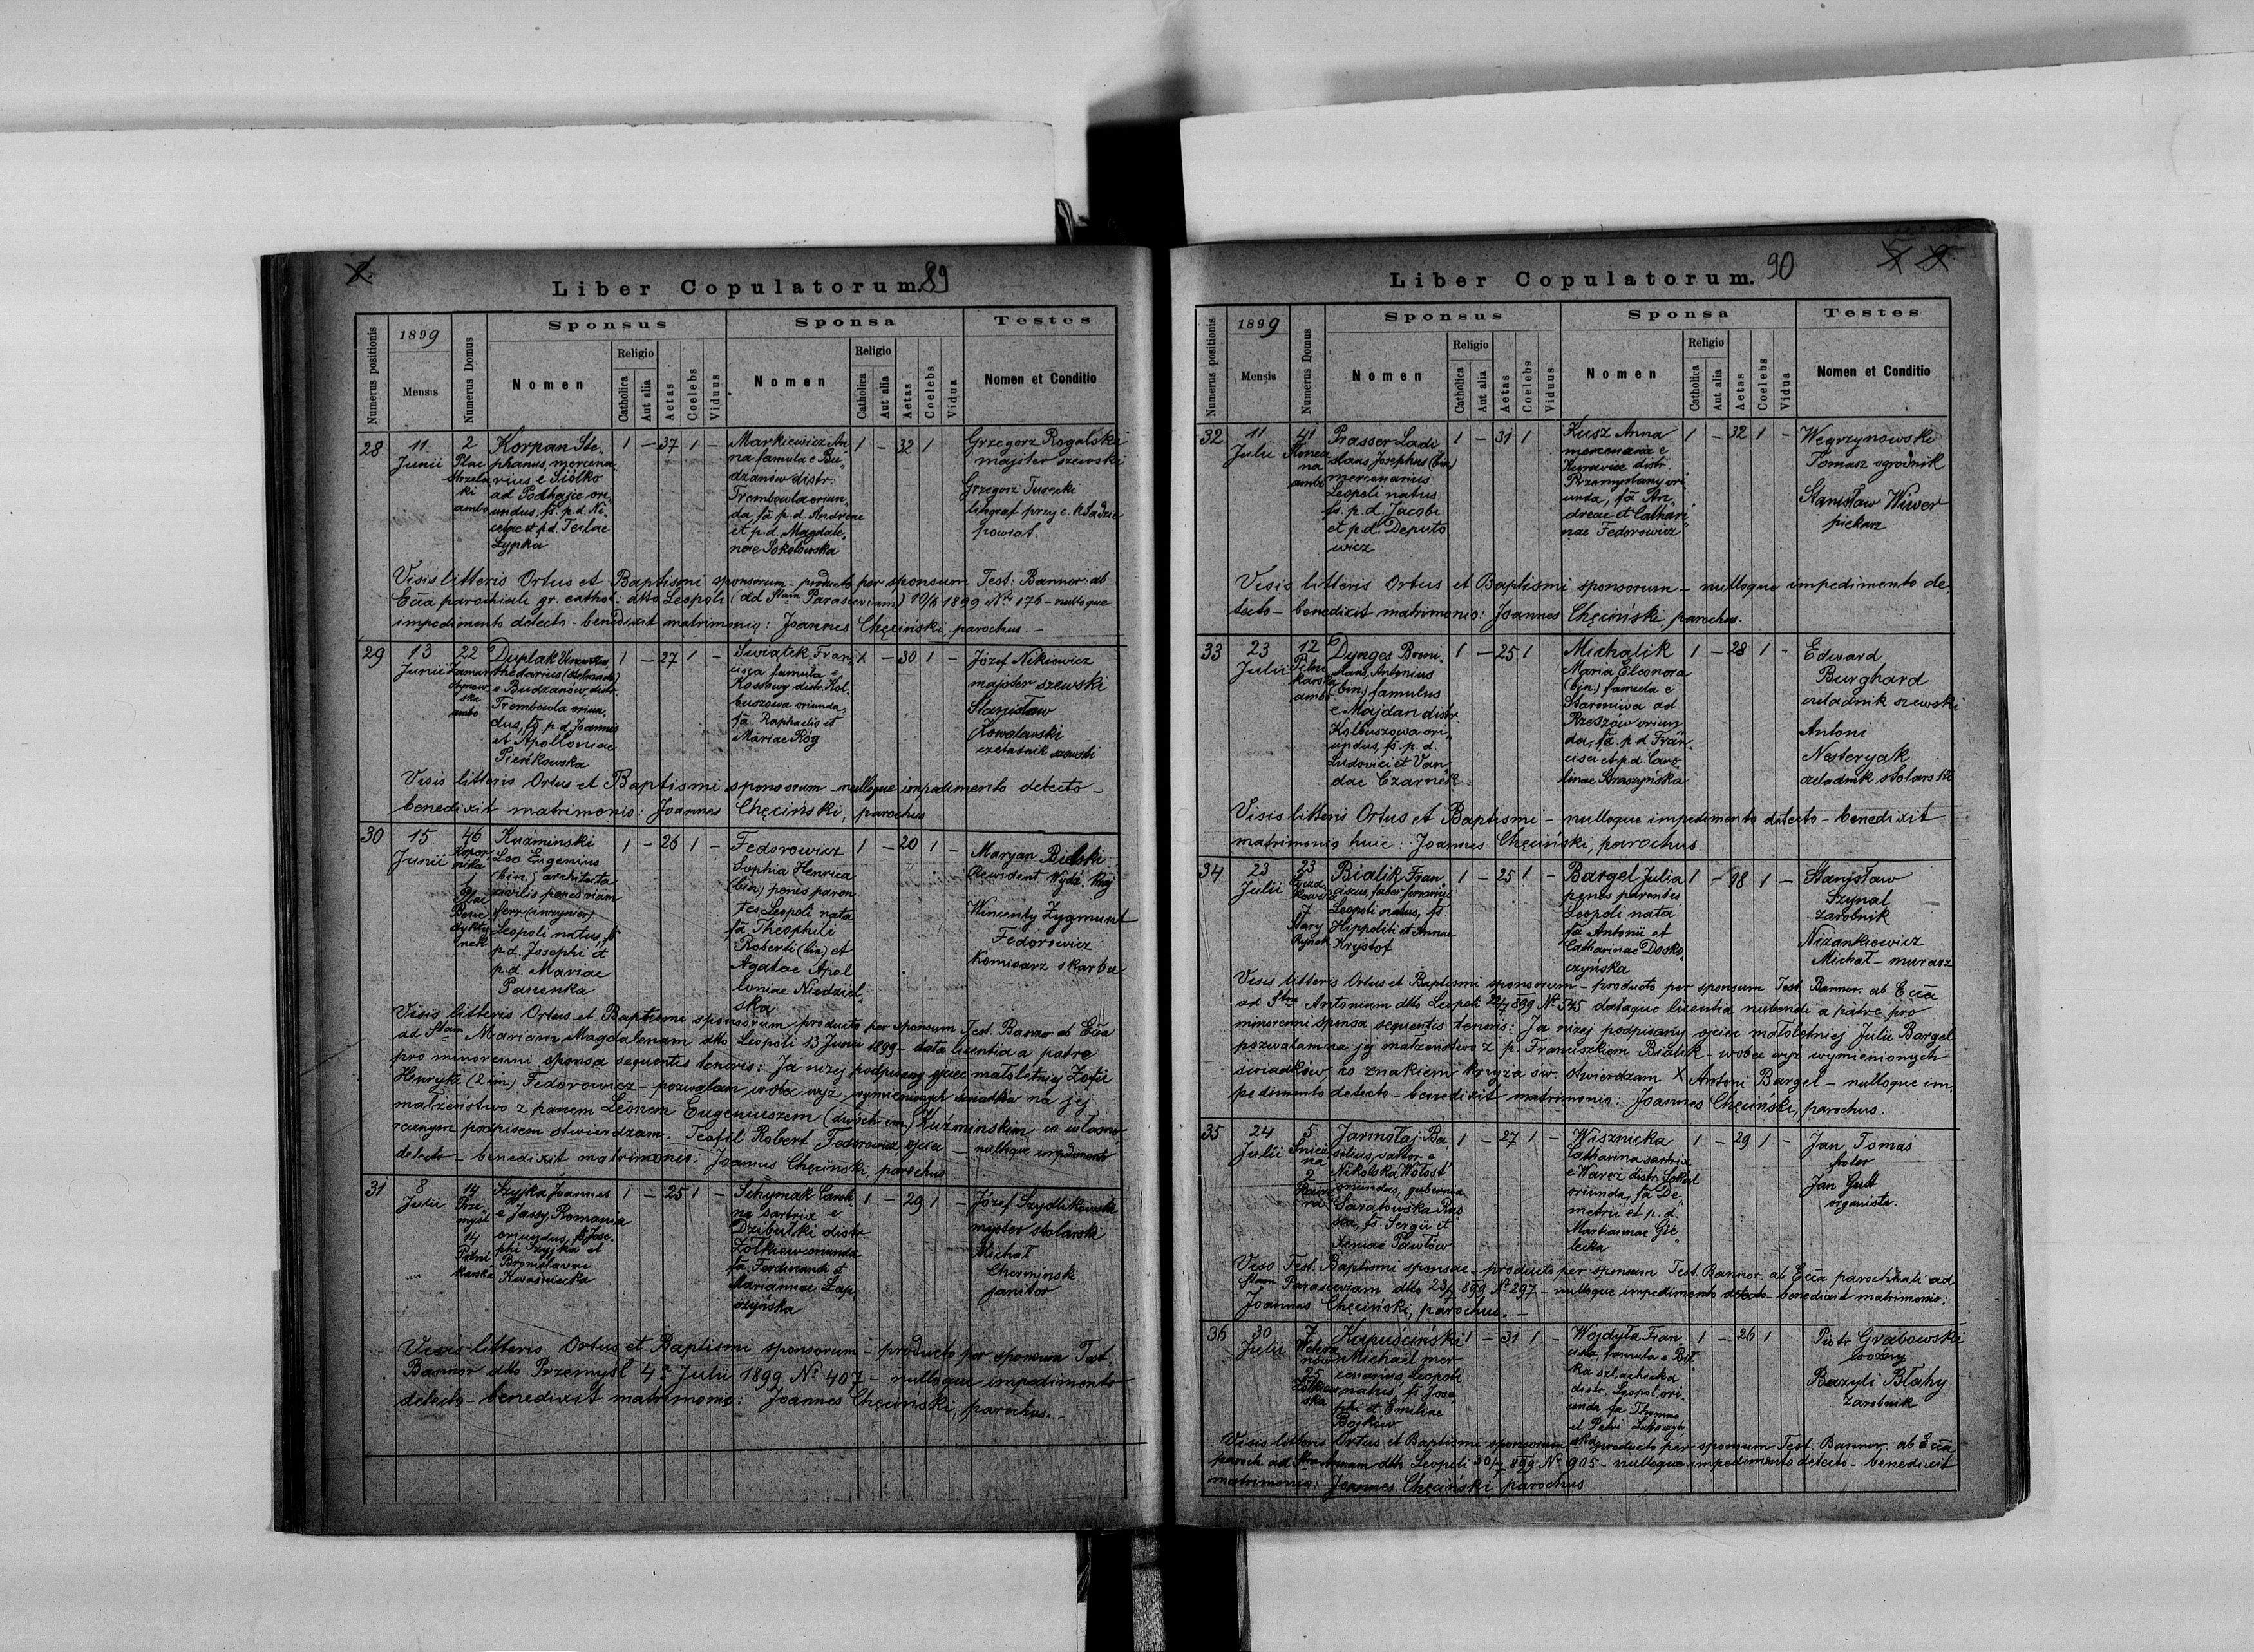 Liber Copulatorum. 89
Numerus positionis
1899
Mensis
Numerus Domus
Sponsus
Nomen
Religio
Catholica
Aut alia
Aetas
Coelebs
Viduus
Sponsa
Nomen
Religio
Catholica
Aut alia
Aetas
Coelebs
Vidua
Testes
Nomen et Conditio
28
11
Junii
2
Plac
Strzelec
ki
ambo
Korpan Ste„
phanus, mercena„
rius e Siółko
ad Podhajce ori„
undus, fs. p.d. Ni„
cetae et p.d. Teclae
Łypka
1 – 37 1 –
Markiewicz An„
na famula e Bu„
dzanów distr.
Trembowla oriun„
da, fa p.d. Andreae
et p.d. Magdale„
nae Sokołowska
1 – 32 1
Grzegorz Rogalski
majster szewski
Grzegorz Turecki
litograf przy c. k. Sądzie
powiat.
Visis litteris Ortus et Baptismi sponsorum – producto per sponsum Test: Bannor: ab
Ecca parochiali gr. cathol: dtto Leopoli (ad Stam Parasceviam) 10/6 1899 Nr 176 – nulloque
impedimento detecto – benedixit matrimonio: Joannes Chęciński parochus. –
29
13
Junii
22
Zamar
stynow
ska
ambo
Duplak Vincentius,
rhedarius (stelmach)
e Budzanów, distr.
Trembowla oriun„
dus, fs p.d. Joannis
et Apolloniae
Pieńkowska
1 – 27 1 –
Swiątek Fran„
cisca famula e
Kossowy distr. Kol„
buszowa oriunda,
fa Raphaelis et
Mariae Róg
1 – 30 1 –
Józef Nikiewicz
majster szewski
Stanisław
Kowalewski
czeladnik szewski
Visis litteris Ortus et Baptismi sponsorum – nulloque impedimento detecto –
benedixit matrimonio: Joannes Chęciński, parochus
30
15
Junii
46
Koper
nika
1
Plac
Bene
dykty
nek
Kuźmiński
Leo Eugenius
(bin.) architecta
civilis penes viam
ferr. (inżynier)
Leopoli natus, fs
p.d. Josephi et
p.d. Mariae
Panenka
1 – 26 1 –
Fedorowicz
Sophia Henrica
(bin.) penes paren
tes, Leopoli nata
fa Theophili
Roberti (bin) et
Agathae Apol
loniae Niedziel„
ska
1 – 20 1 –
Maryan Bielski
Rewident Wydz. Kraj
Wincenty Zygmunt
Fedorowicz
Komisarz skarbu
Visis litteris Ortus et Baptismi sponsorum producto per sponsum Test. Bannor. ab Ecca
ad Stam Mariam Magdalenam dtto Leopoli 13 Junii 1899 – data licentia a patre
pro minorenni sponsa sequentis tenoris: Ja niżej podpisany ojciec małoletniej Zofii
Henryki (2 im.) Fedorowicz – pozwalam wobec wyż wymienionych świadków na jej
małżeństwo z panem Leonem Eugeniuszem (dwóch im) Kuźmińskim co własno„
ręcznym podpisem stwierdzam. Teofil Robert Fedorowicz ojciec – nulloque impedimento
detecto – benedixit matrimonio: Joannes Chęciński, parochus
31
8
Julii
14
Prze„
myśl
14
Pełni
karska
Szyjka Joannes
e Jassy, Romania
oriundus, fs Jose„
phi Szyjka et
Bronislavae
Kwaśniecka
1 – 25 1 –
Schymak Caroli„
na sartrix e
Dzibułki distr.
Żółkiew oriunda
fa Ferdinandi et
Mariannae Łap„
czyńska
1 – 29 1 –
Józef Szydlikowski
majster stolarski
Michał
Chermiński
janitor
Visis litteris Ortus et Baptismi sponsorum – producto per sponsum Test.
Bannor dtto Przemyśl 4a Julii 1899 No 407 – nulloque impedimento
detecto – benedixit matrimonio: Joannes Chęciński, parochus. –
Liber Copulatorum. 90
Numerus positionis
1899
Mensis
Numerus Domus
Sponsus
Nomen
Religio
Catholica
Aut alia
Aetas
Coelebs
Viduus
Sponsa
Nomen
Religio
Catholica
Aut alia
Aetas
Coelebs
Vidua
Testes
Nomen et Conditio
32
11
Julii
41
Słonecz
na
ambo
Prasser Ladi
slaus Josephus (bin)
mercenarius
Leopoli natus,
fs. p.d. Jacobi
et p.d. Deputo
wicz
1 – 31 1
Kusz Anna
mercenaria e
Kurowice distr.
Przemyślany ori
unda, fa An„
dreae et Cathari„
nae Fedorowicz
1 – 32 1 –
Węgrzynowski
Tomasz ogrodnik
Stanisław Wiwer
piekarz
Visis litteris Ortus et Baptismi sponsorum – nulloque impedimento de„
tecto – benedixit matrimonio: Joannes Chęciński, parochus.
33
23
Julii
12
Pełni
karska
ambo
Dynges Broni„
slaus, Antonius
(bin) famulus
e Majdan distr.
Kolbuszowa ori„
undus, fs. p.d.
Ludovici et Van„
dae Czarnek
1 – 25 1
Michalik
Maria Eleonora
(bin) famula e
Staroniwa ad
Rzeszów oriun„
da, fa p.d. Fran„
cisci et p.d. Caro„
linae Straszyńska
1 – 28 1 –
Edward
Burghard
czeladnik szewski
Antoni
Nesteryak
czeladnik stolarski
Visis litteris Ortus et Baptismi – nulloque impedimento detecto – benedixit
matrimonio huic: Joannes Chęciński, parochus.
34
23
Julii
23
7
Stary
Rynek
Bialik Fran„
ciscus, faber ferrarius
Leopoli natus, fs.
Hippoliti et Annae
Krysztof
1 – 25 1 –
Bargel Julia
penes parentes
Leopoli nata
fa Antonii et
Catharinae Dosko„
czyńska
1 – 18 1 –
Stanisław
Szynal
zarobnik
Niżankiewicz
Michał – murarz
Visis litteris Ortus et Baptismi sponsorum – producto per sponsum Test. Bannor. ab Ecca
ad Stum Antonium dtto Leopoli 22/7 899 No 545 dataque licentia nubendi a patre pro
minorenni sponsa sequentis tenoris: Ja niżej podpisany ojciec małoletniej Julii Bargel
pozwalam na jej małżeństwo z p. Franciszkiem Bialik – wobec wyż wymienionych
świadków co znakiem krzyża św. stwierdzam X Antoni Bargel – nulloque im„
pedimento detecto – benedixit matrimonio: Joannes Chęciński, parochus.
35
24
Julii
5
Śnież
na
2
Jarmołaj Ba„
silius, sartor e
Nikolska Wołost
oriundus, gubernia
Saratowska Rus
sia, fs. Sergii et
Xeniae Pawłów
1 – 27 1 –
Wisznicka
Catharina sartrix
e Waręż distr. Sokal
oriunda, fa De„
metrii et p.d.
Martiannae Gie„
lecka
1 – 29 1 –
Jan Tomaś
Jan Gutt
organista.
Viso Test. Baptismi sponsae – producto per sponsum Test. Bannor. ab Ecca parochiali ad
Stam Parasceviam dtto 23/7 899 No 297 – nulloque impedimento detecto – benedixit matrimonio:
Joannes Chęciński, parochus. –
36
30
Julii
7
Wetera
nów
25
Żółkiew
ska
Kapuściński
Michael mer
cenarius, Leopoli
natus, fs Jose
phi et Emiliae
Bojków
1 – 31 1 –
Wojdyła Fran„
cisca, famula e Bił„
ka szlachecka
distr. Leopol ori„
unda fa Thomae
et Petri
1 – 26 1
Piotr Grabowski
woźny
Bazyli Błahy
zarobnik
Visis litteris Ortus et Baptismi sponsorum – producto per sponsum Test. Bannor. ab Ecca
paroch. ad Stam Annam dtto Leopoli 30/7 899 No 905 – nulloque impedimento detecto – benedixit
matrimonio: Joannes Chęciński parochus